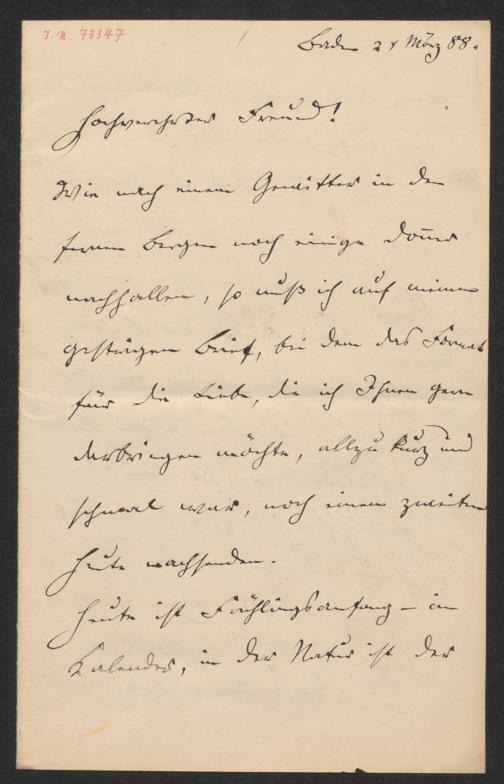 I. N. 73347
Baden 21 März 88.
Hochverehrter Freund!
Wie nach einem Gewitter in den
fernen Bergen noch einige Donner
nachhallen, so muß ich auf meinen
gestrigen Brief, bei dem das Format
für die Liebe, die ich Ihnen gern
darbringen möchte, allzu kurz und
schmal war, noch einen zweiten
heute nachsenden.
Heute ist Frühlingsanfang – im
Kalender, in der Natur ist der